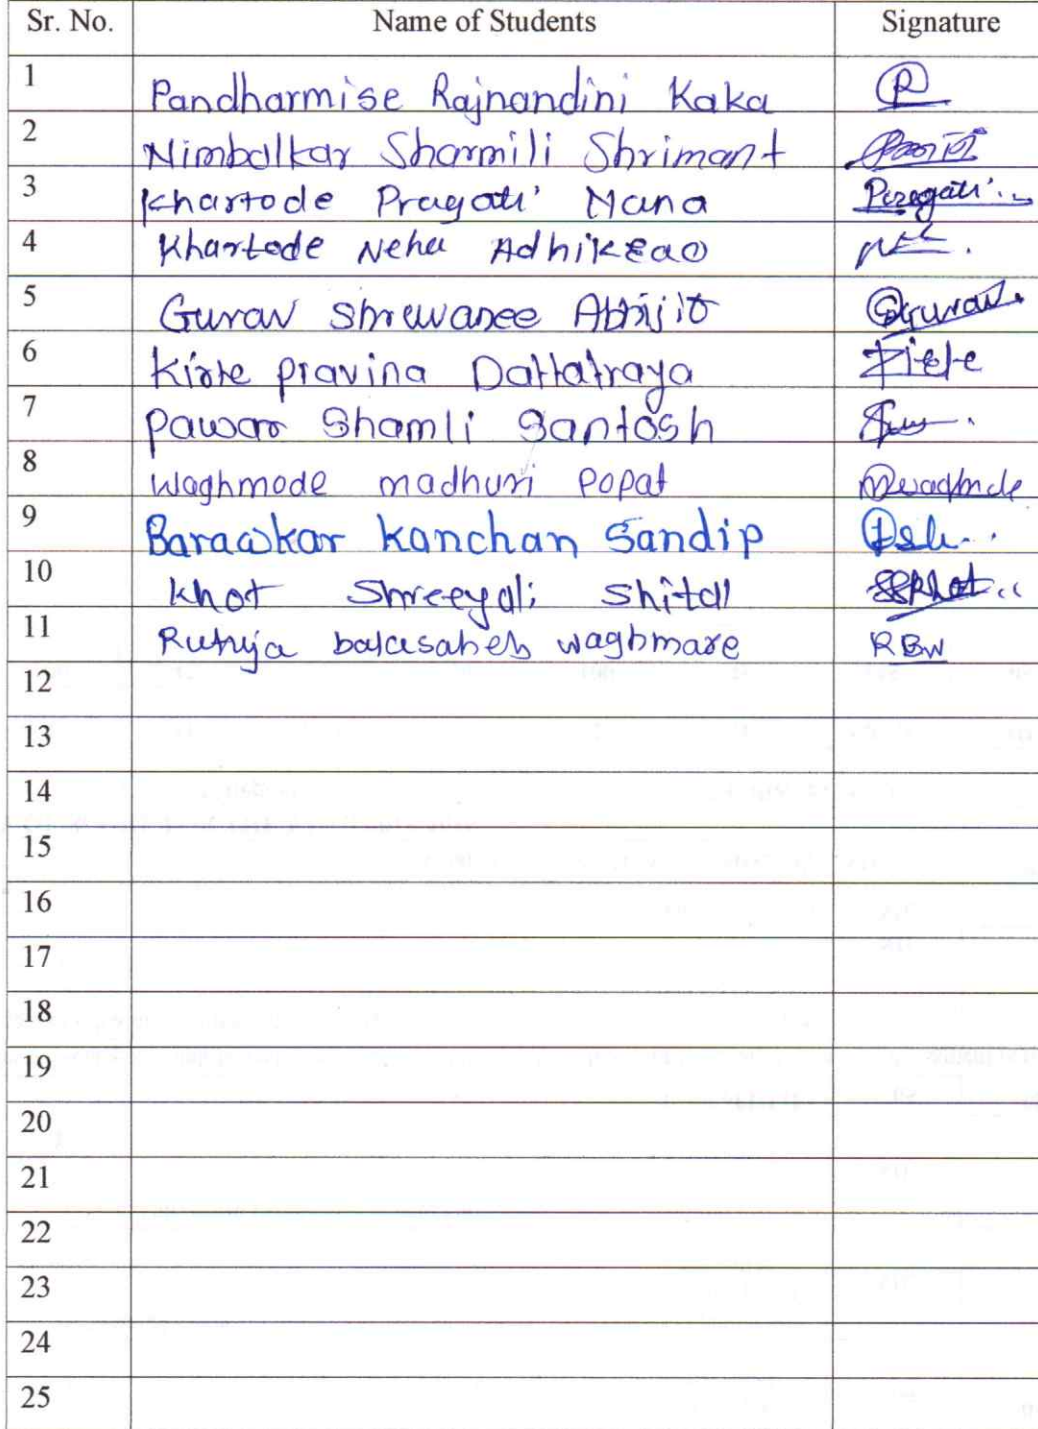 Sr. No. Name of Students Signature
1 Pandharmise Rajnandini Kaka R
2 Nimbalkar Sharmili Shrimant
3 Khartode Pragati Nana Pragati
4 Khartode Neha Adhikrao
5 Gurav Shrawanee Abhijit Gurav
6 Kirte Pravina Dattatraya
7 Pawar Shamli Santosh
8 Waghmode madhuri Popat
9 Barawkar Kanchan Sandip
10 Khot Shreeyali Shital SSKhot
11 Rutuja balasaheb waghmare RBW
12
13
14
15
16
17
18
19
20
21
22
23
24
25